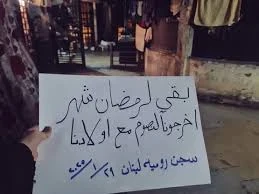 بقي لرمضان شهر
اخرجونا لنصوم مع اولادنا
سجن روميه لبنان ٢٩ / ١ / ٢٠٢٥